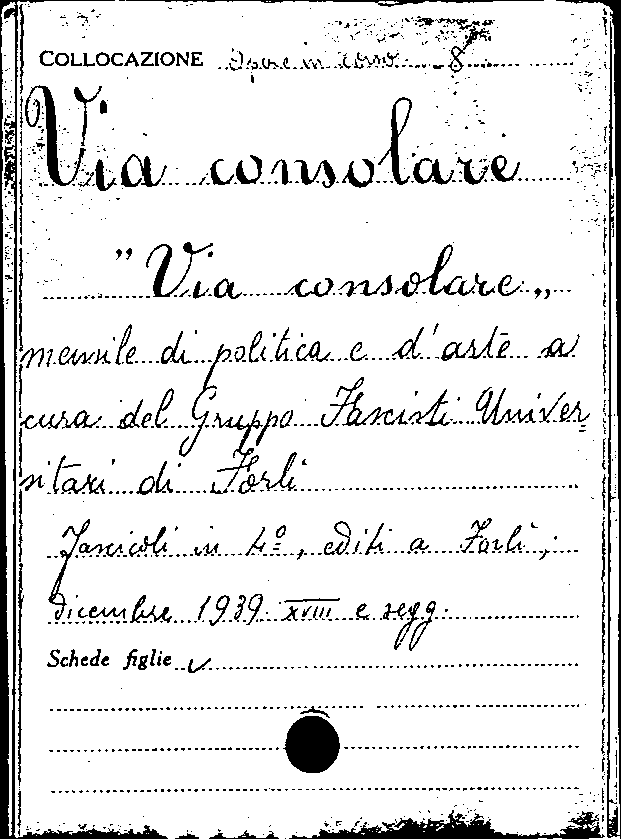 COLLOCAZIONE Opere in corso 8
Via consolare
"Via consolare„
mensile di politica e d'arte a
cura del Gruppo Fascisti Univer=
sitari di Forlì
Fascicoli in 4º, editi a Forlì,
dicembre 1939. XVIII e segg.
Schede figlie